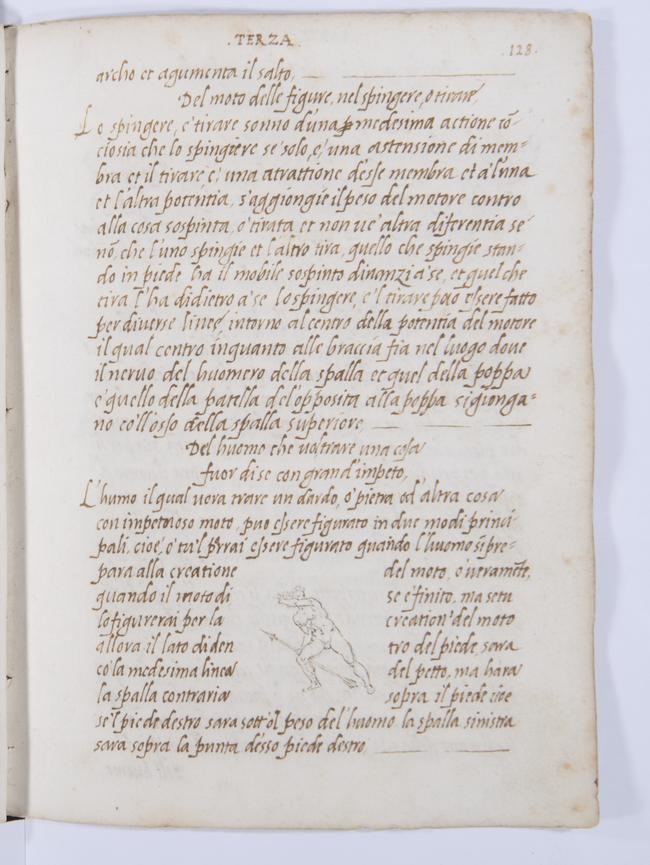 .TERZA.
.128.
archo et agumenta il salto,
Del moto delle figure, nel spingere, o tirare,
Lo spingere, e' tirare sonno d'una medesima actione cō
ciosia che lo spingere se solo, e' una astensione di mem=
bra et il tirare e' una atrattione d'esse membra et a l'una
et l'altra potentia, s'aggiongie il peso del motore contro
alla cosa sospinta, o' tirata et non ve' altra diferentia se
nō, che l'uno spingie et l'altro tira, quello che spingie stan=
do in piede ha il mobile sospinto dinanzi a'se, et quel che
tira l'ha didietro a'se lo spingere, e'l tirare po'o essere fatto
per diverse linee, intorno al centro della potentia del motore
il qual centro inquanto alle braccia fia nel luogo dove
il nervo del huomero della spalla et quel della poppa
e' quello della patella del'opposita alla poppa si gionga=
no coll'osso della spalla superiore,
Del huomo che vol trare una cosa
fuor di se con grand'impeto,
L'humo il qual vora trare un dardo, o' pietra od' altra cosa
con impetuoso moto, puo essere figurato in due modi princi
pali, cioe, o' tu'l porrai essere figurato quando l'huomo si pre=
para alla creatione del moto, o' veramēte,
quando il moto di se e finito, ma se tu
lo figurerai per la creation' del moto
allora il lato di den tro del piede, sara
co' la medesima linea del petto, ma hara
la spalla contraria sopra il piede cioe
se'l piede destro sara sott'ol peso del' huomo la spalla sinistra
sara sopra la punta d'esso piede destro,